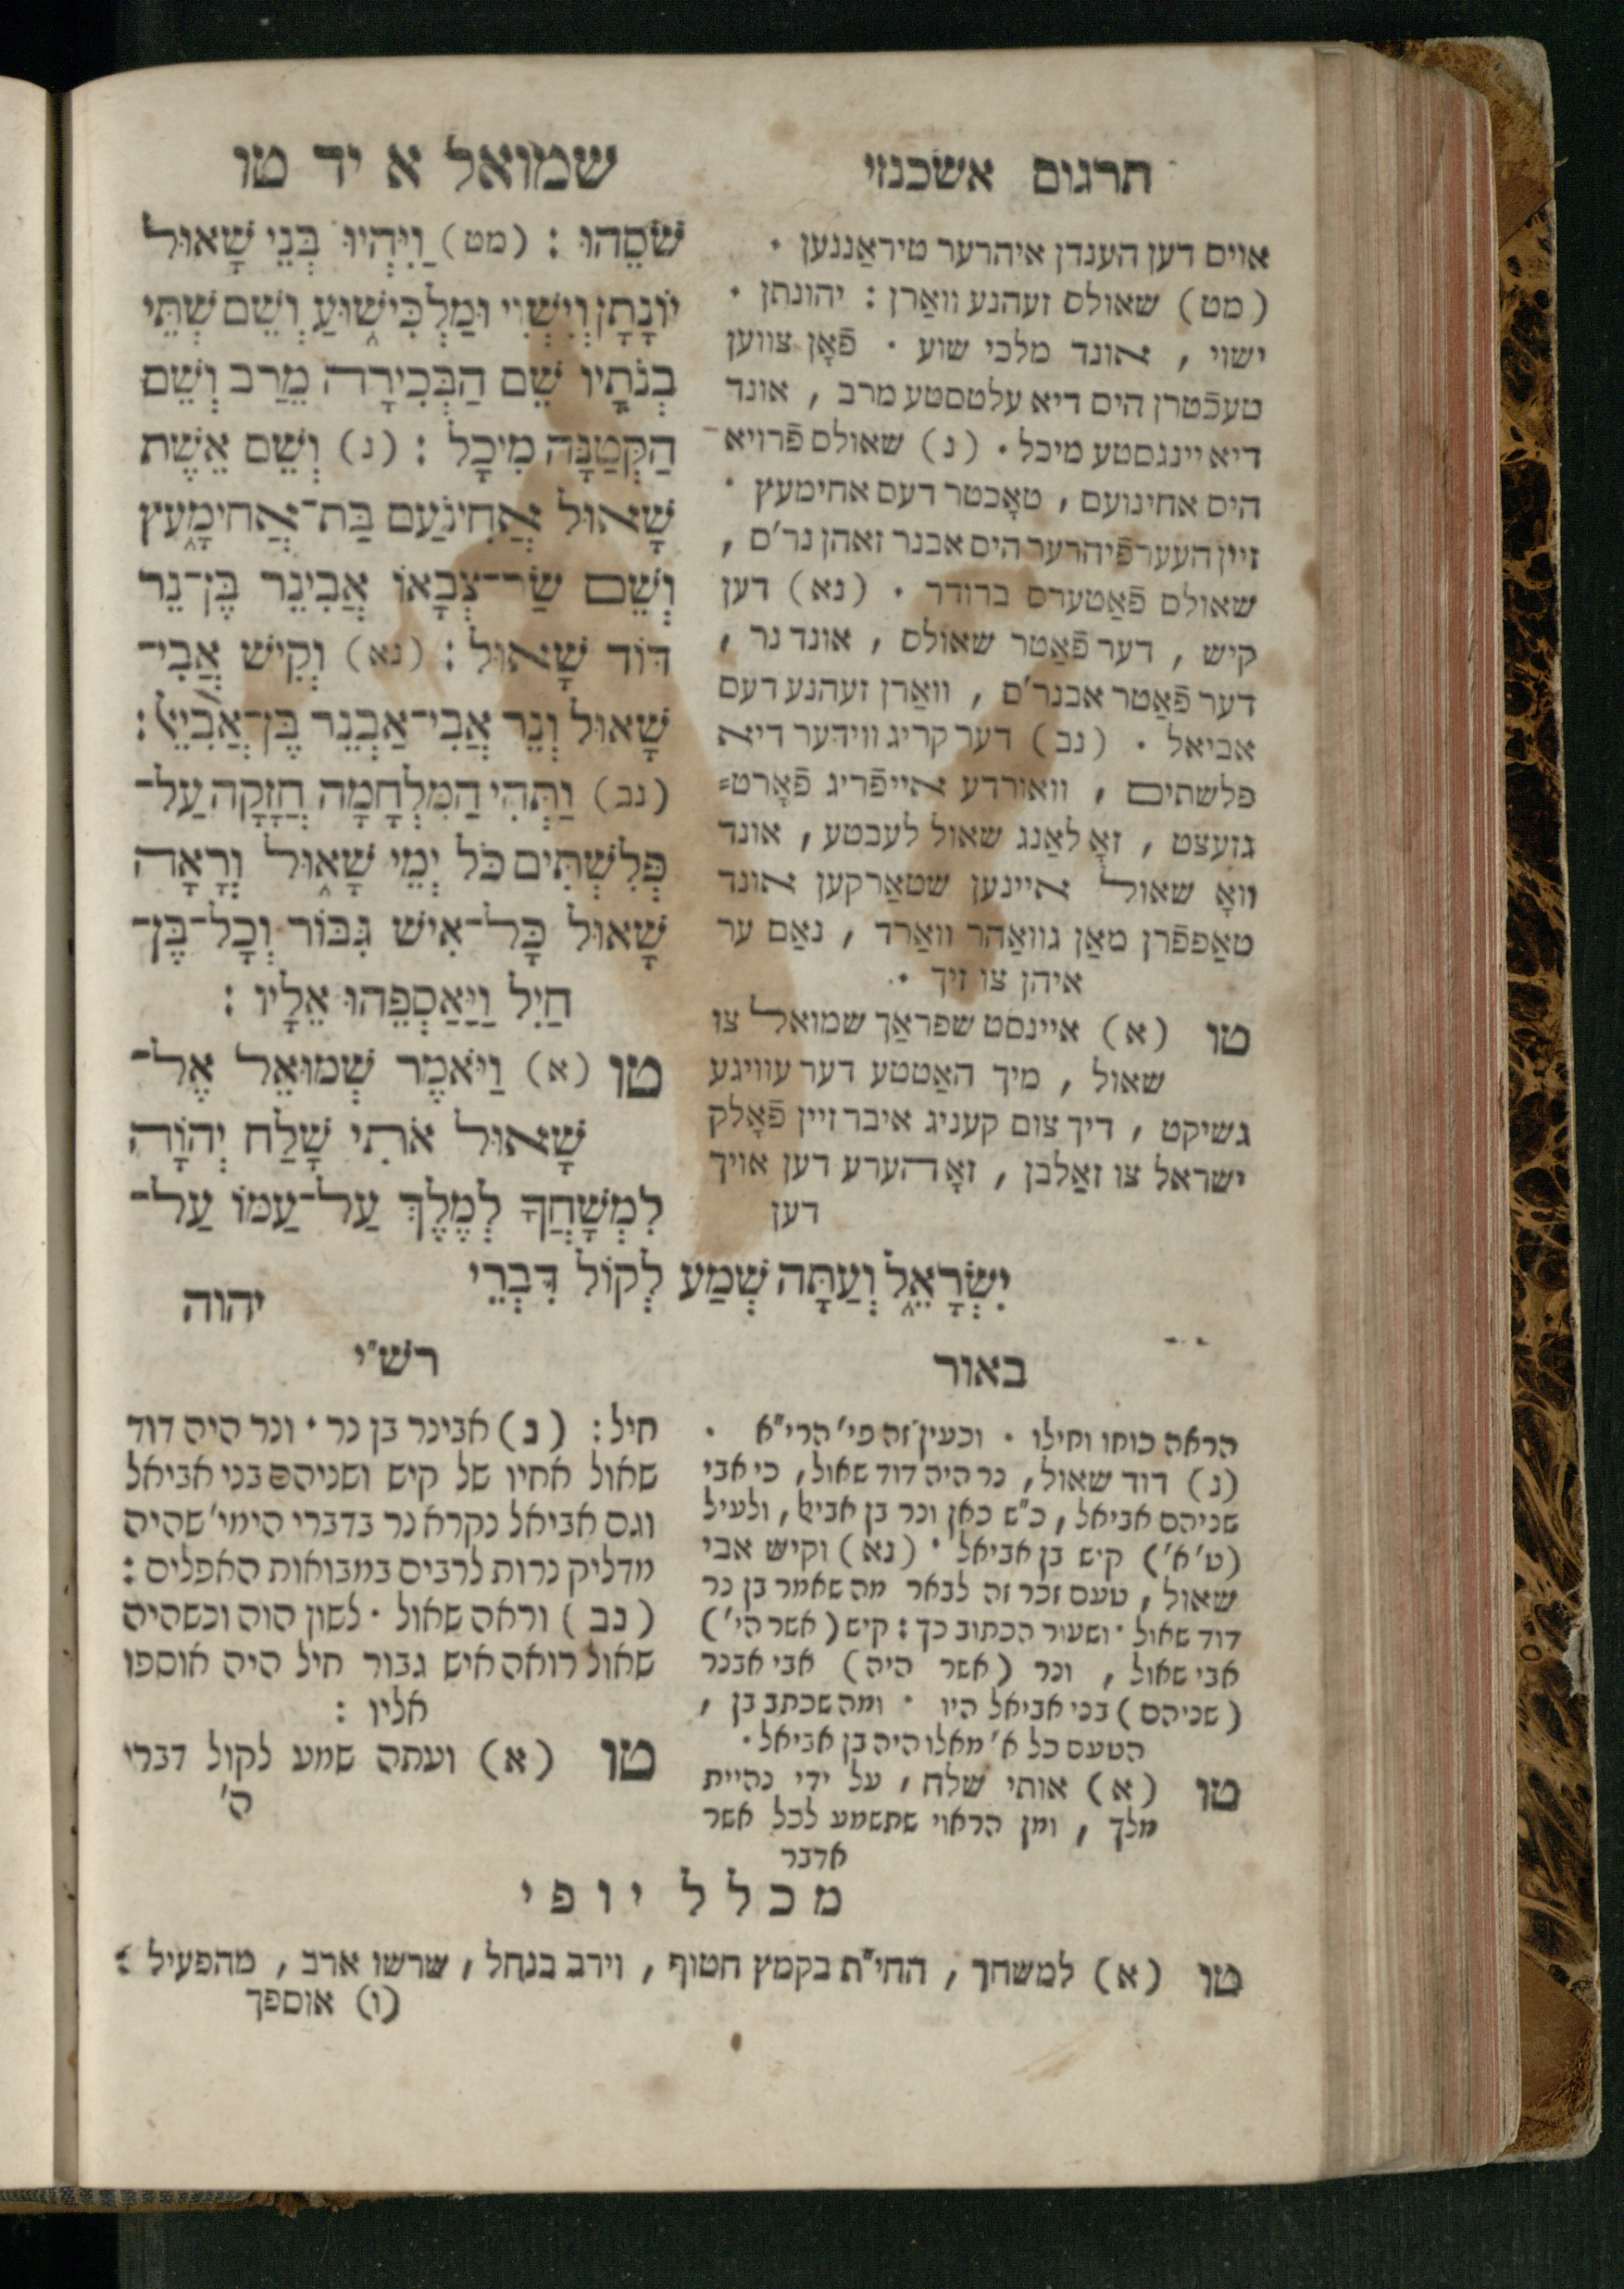 תרגום אשכנזי
שמואל א יד טו
אויס דען הענדן איהרער טיראַננען .
(מט) שאולס זעהנע וואַרן : יהונתן .
ישוי , אונד מלכי שוע . פֿאָן צווען
טעכֿטרן היס דיא עלטסטע מרב , אונד
דיא יינגסטע מיכל . (נ) שאולס פֿרויא
היס אחינועם , טאָכטר דעס אחימעץ .
זיין העערפֿיהרער היס אבנר זאהן נר'ס ,
שאולס פֿאַטערס ברודר . (נא) דען
קיש , דער פֿאַטר שאולס , אונד נר ,
דער פֿאַטר אבנר'ס , וואַרן זעהנע דעס
אביאל . (נב) דער קריג ווידער דיא
פלשתים , וואורדע אייפֿריג פֿאָרט=
גזעצט , זאָ לאַנג שאול לעבטע , אונד
וואָ שאול איינען שטאַרקען אונד
טאַפפֿרן מאַן גוואַהר וואַרד , נאַם ער
איהן צו זיך .
טו (א) איינסט שפראַך שמואל צו
שאול , מיך האַטטע דער עוויגע
גשיקט , דיך צום קעניג איבר זיין פֿאָלק
ישראל צו זאַלבן , זאָ הערע דען אויך
דען
שֹׁסֵהוּ : (מט) וַיִּהְיוּ בְּנֵי שָׁאוּל
יוֹנָתָן וְיִשְׁוִי וּמַלְכִּישׁוּעַ וְשֵׁם שְׁתֵּי
בְנֹתָיו שֵׁם הַבְּכִירָה מֵרַב וְשֵׁם
הַקְּטַנָּה מִיכָל : (נ) וְשֵׁם אֵשֶׁת
שָׁאוּל אֲחִינֹעַם בַּת־אֲחִימָעַץ
וְשֵׁם שַׂר־צְבָאוֹ אֲבִינֵר בֶּן־נֵר
דּוֹד שָׁאוּל : (נא) וְקִישׁ אֲבִי־
שָׁאוּל וְנֵר אֲבִי־אַבְנֵר בֶּן־אֲבִיאֵל :
(נב) וַתְּהִי הַמִּלְחָמָה חֲזָקָה עַל־
פְּלִשְׁתִּים כֹּל יְמֵי שָׁאוּל וְרָאָה
שָׁאוּל כָּל־אִישׁ גִּבּוֹר וְכָל־בֶּן־
חַיִל וַיַּאַסְפֵהוּ אֵלָיו :
טו (א) וַיֹּאמֶר שְׁמוּאֵל אֶל־
שָׁאוּל אֹתִי שָׁלַח יְהוָֹה
לִמְשָׁחֳךָ לְמֶלֶךְ עַל־עַמּוֹ עַל־
יִשְׂרָאֵל וְעַתָּה שְׁמַע לְקוֹל דִּבְרֵי
יהוה
באור
הראה כוחו וחילו . וכעין זה פי' הרי"א .
(נ) דוד שאול, נר היה דוד שאול, כי אבי
שניהם אביאל, כ"ש כאן ונר בן אביאל, ולעיל
(ט'א') קיש בן אביאל . (נא) וקיש אבי
שאול , טעם זכר זה לבאר מה שאמר בן נר
דוד שאול . ושעור הכתוב כך : קיש (אשר הי')
אבי שאול , ונר (אשר היה) אבי אבנר
(שניהם) בני אביאל היו . ומה שכתב בן ,
הטעם כל א' מאלו היה בן אביאל .
טו (א) אותי שלח , על ידי נהיית
מלך , ומן הראוי שתשמע לכל אשר
אדבר
רש"י
חיל : (נ) אבינר בן נר . ונר היה דוד
שאול אחיו של קיש ושניהם בני אביאל
וגם אביאל נקרא נר בדברי הימי' שהיה
מדליק נרות לרבים במבואות האפלים :
(נב) וראה שאול . לשון הוה וכשהיה
שאול רואה איש גבור חיל היה אוספו
אליו :
טו (א) ועתה שמע לקול דברי
ה'
מכלל יופי
טו (א) למשחך , החי"ת בקמץ חטוף , וירב בנחל , שרשו ארב , מהפעיל :
(ו) אוספך